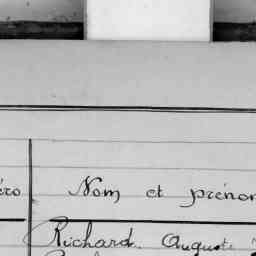 éro Nom et prénom
Richard Auguste